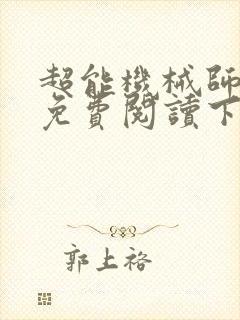 超能機械師
免費閱讀下
郭上裕